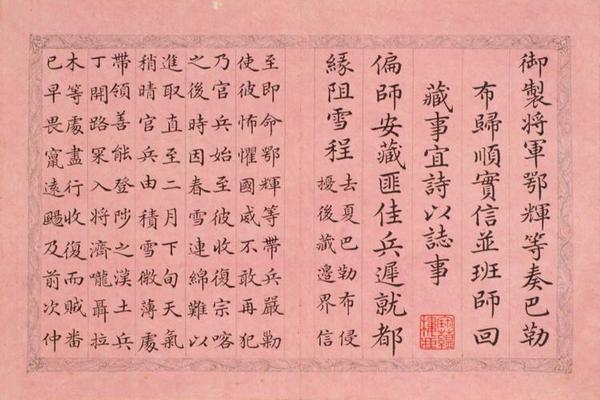 御製將軍鄂輝等奏巴勒
布歸順實信並班師回
藏事宜詩以誌事
偏師安藏匪佳兵遲就都
緣阻雪程
去夏巴勒布侵
擾後藏邊界信
至即命鄂輝等帶兵嚴勒
使彼怖懼國威不敢再犯
乃官兵始至彼收復宗喀
之後時因春雪連綿難以
進取直至二月下旬天氣
稍晴官兵由積雪微薄處
帶領善能登陟之漢土兵
丁開路罙入將濟嚨聶拉
木等處盡行收復而賊番
已早畏竄遠颺及前次仲